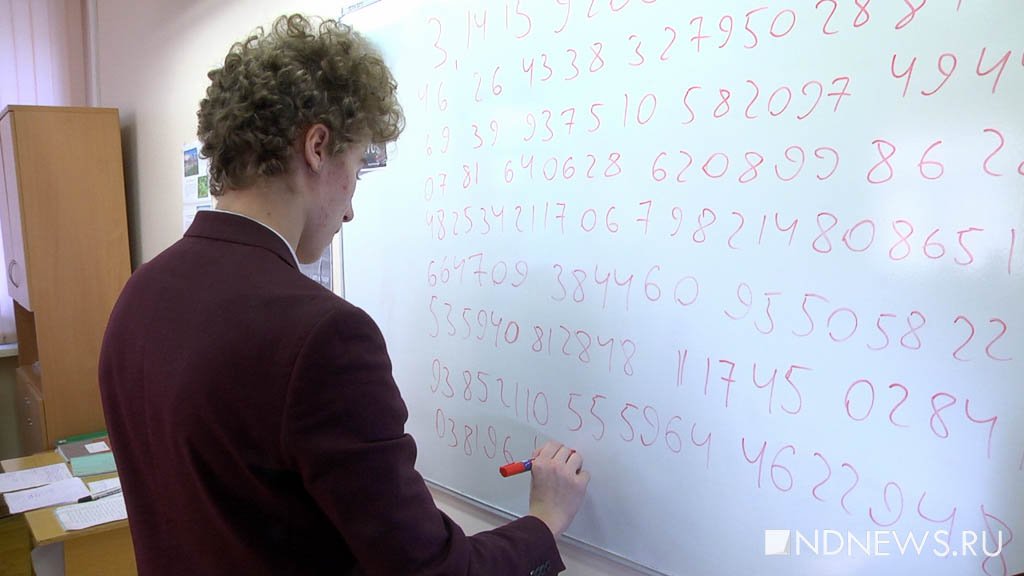 3, 14 15 920
46 26 4338 327950 288
69 39 937510 582097 494
07 81 640628 620899 86 2
4825342117 06 7 98214808651
664709 384460 955058 22
535940 812848 111745 0284
93852110 555964 4622948
038196
NDNEWS.RU